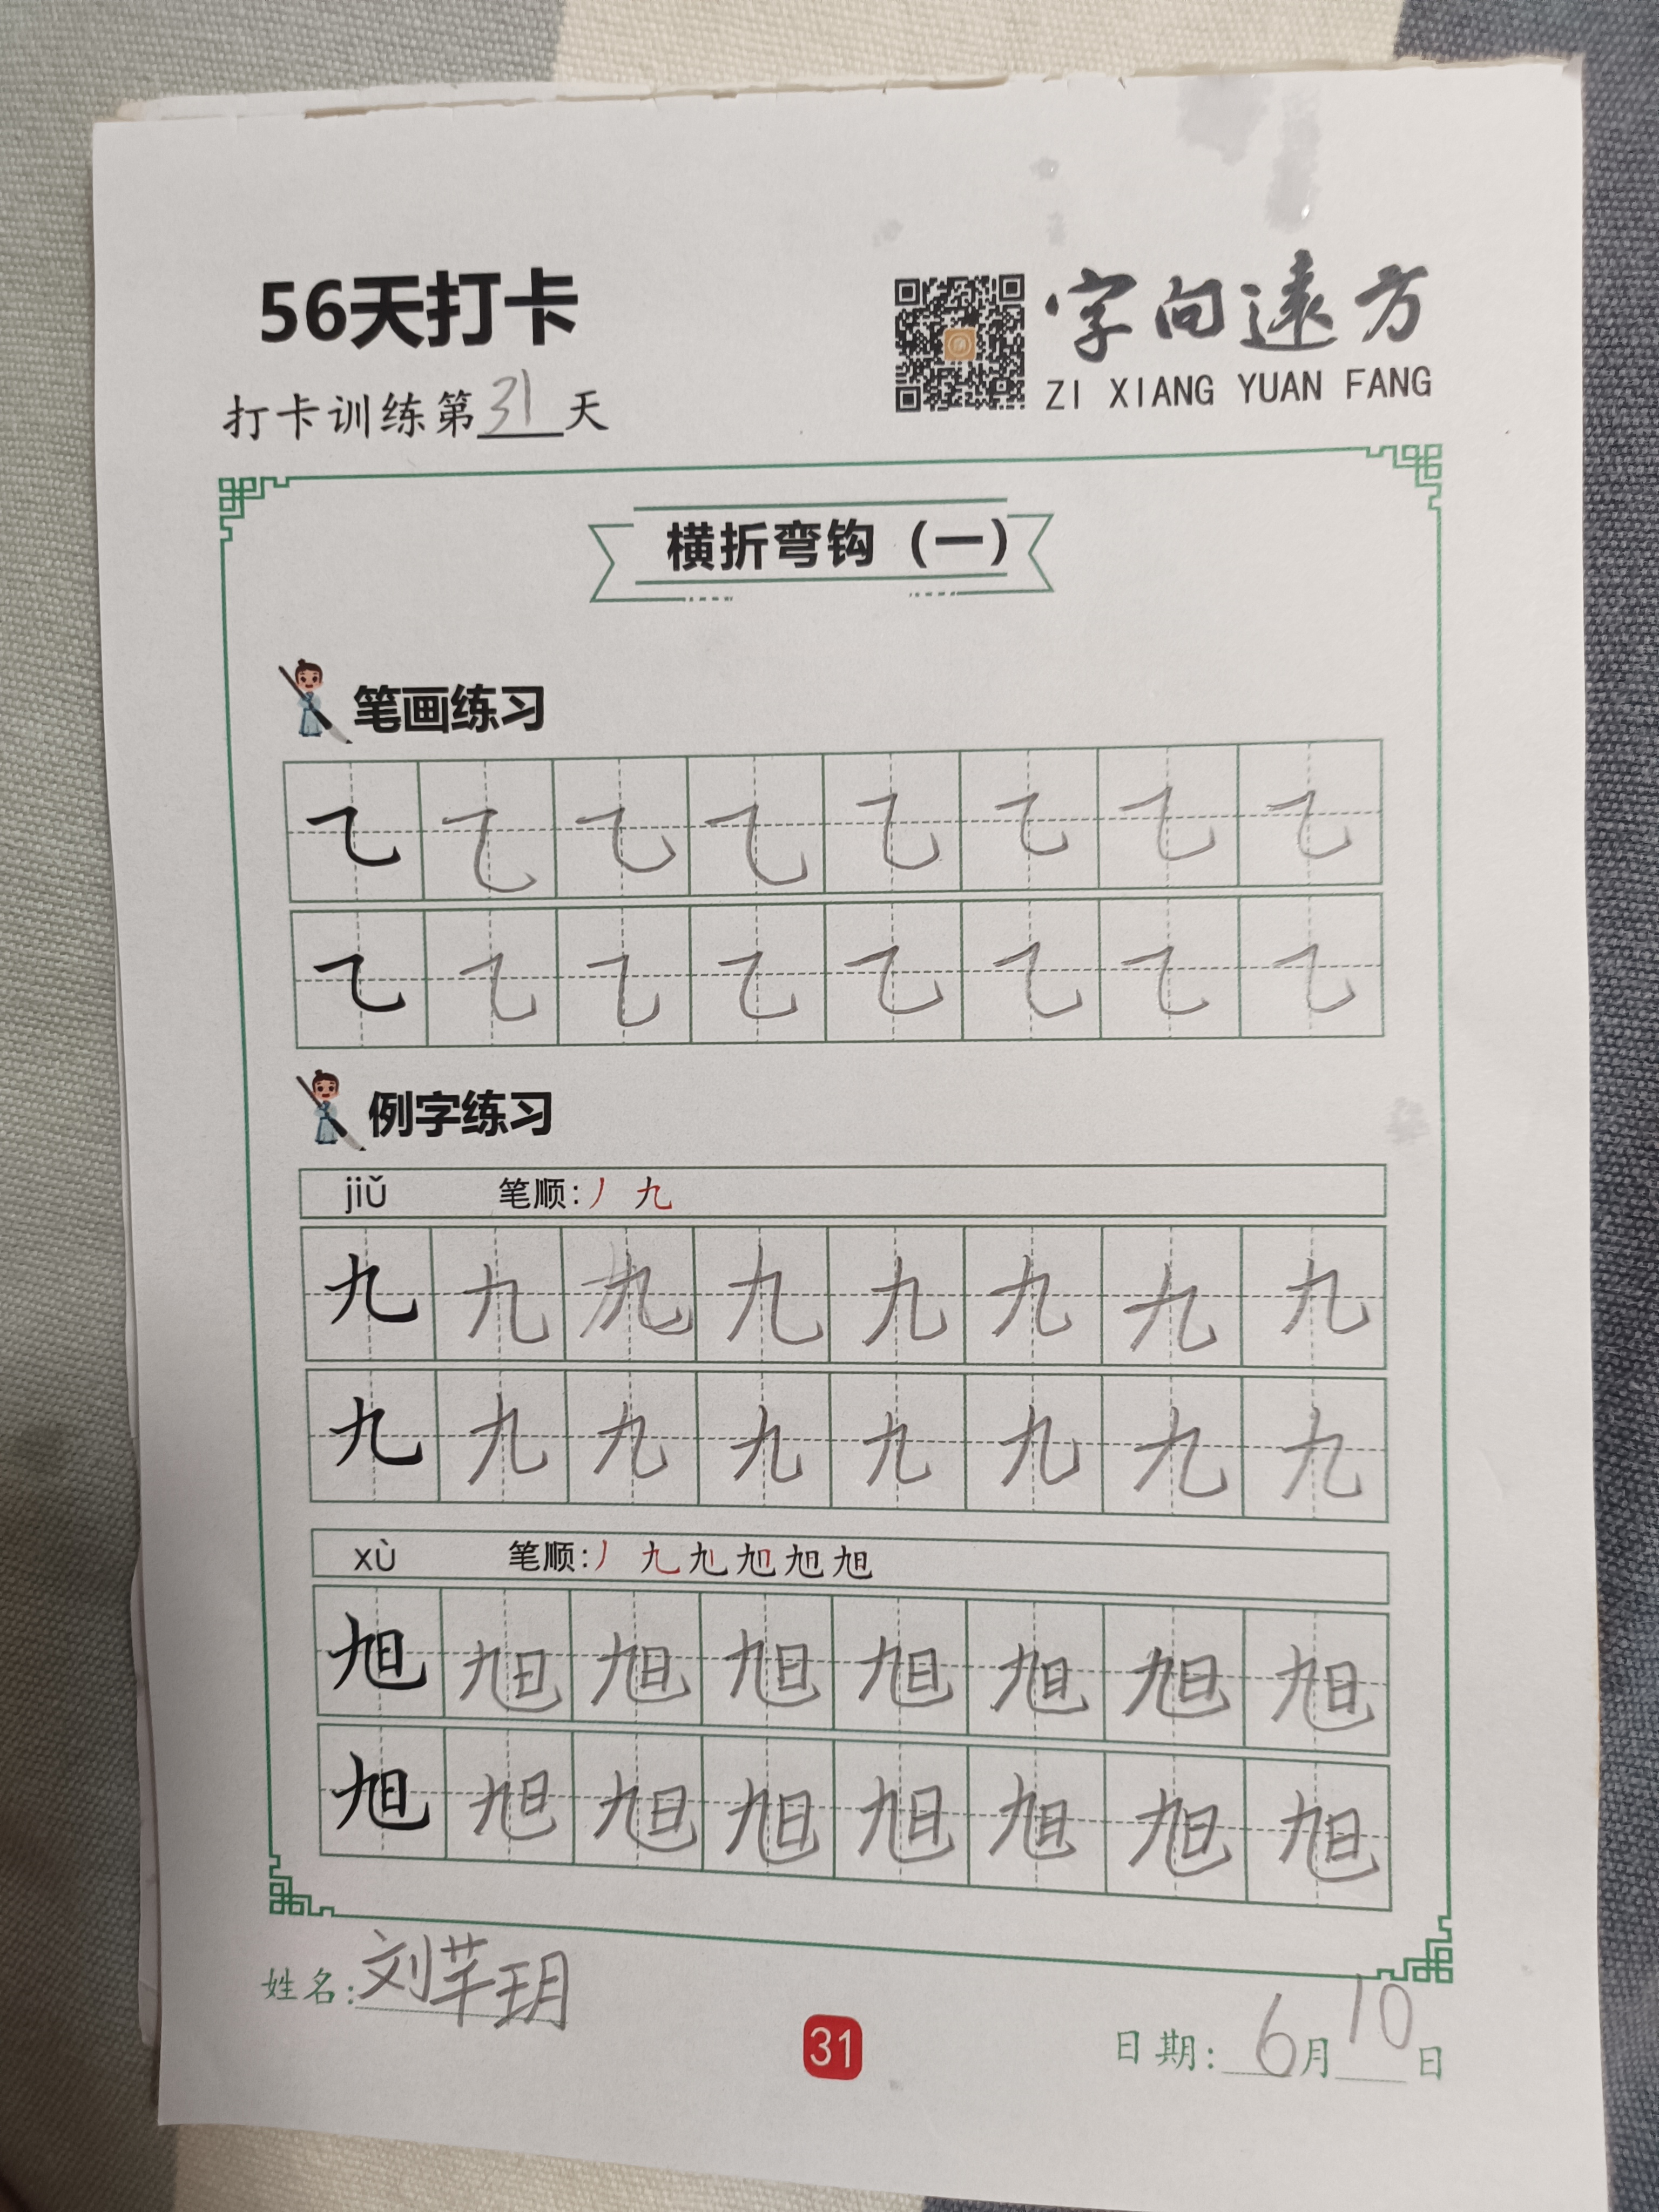 56天打卡
字向遠方
ZI XIANG YUAN FANG
打卡训练第31天
横折弯钩（一）
笔画练习
乙乙乙乙乙乙乙乙
乙乙乙乙乙乙乙乙
例字练习
jiǔ 笔顺：丿 九
九九九九九九九九
九九九九九九九九
xù 笔顺：丿 九 旭 旭 旭 旭
旭旭旭旭旭旭旭旭
旭旭旭旭旭旭旭旭
姓名：刘芊玥
31
日期：6月10日